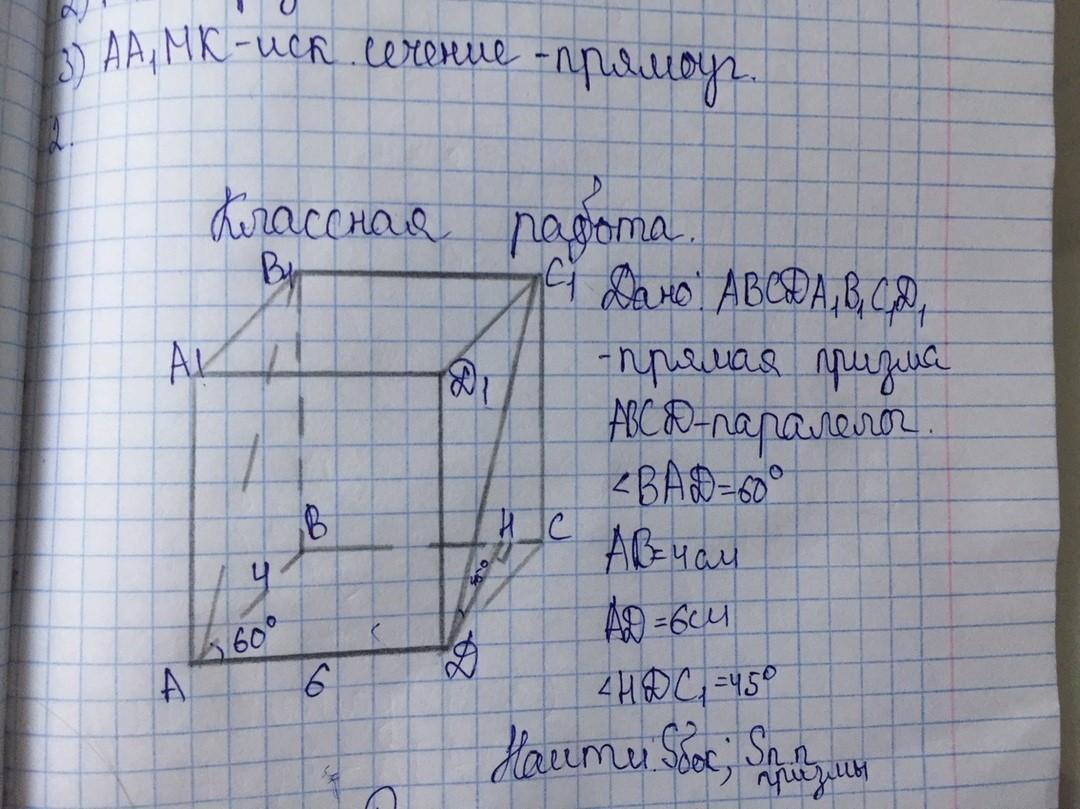 3) AA₁MK - иск. сечение - прямоуг.
2.
Классная работа.
B₁
C₁
A₁
D₁
B
H
C
4
45°
60°
A
6
D
Дано: ABCDA₁B₁C₁D₁
- прямая призма
ABCD - паралелог.
∠BAD = 60°
AB = 4 см
AD = 6 см
∠HDC₁ = 45°
Найти: Sбок; Sп.п
призмы